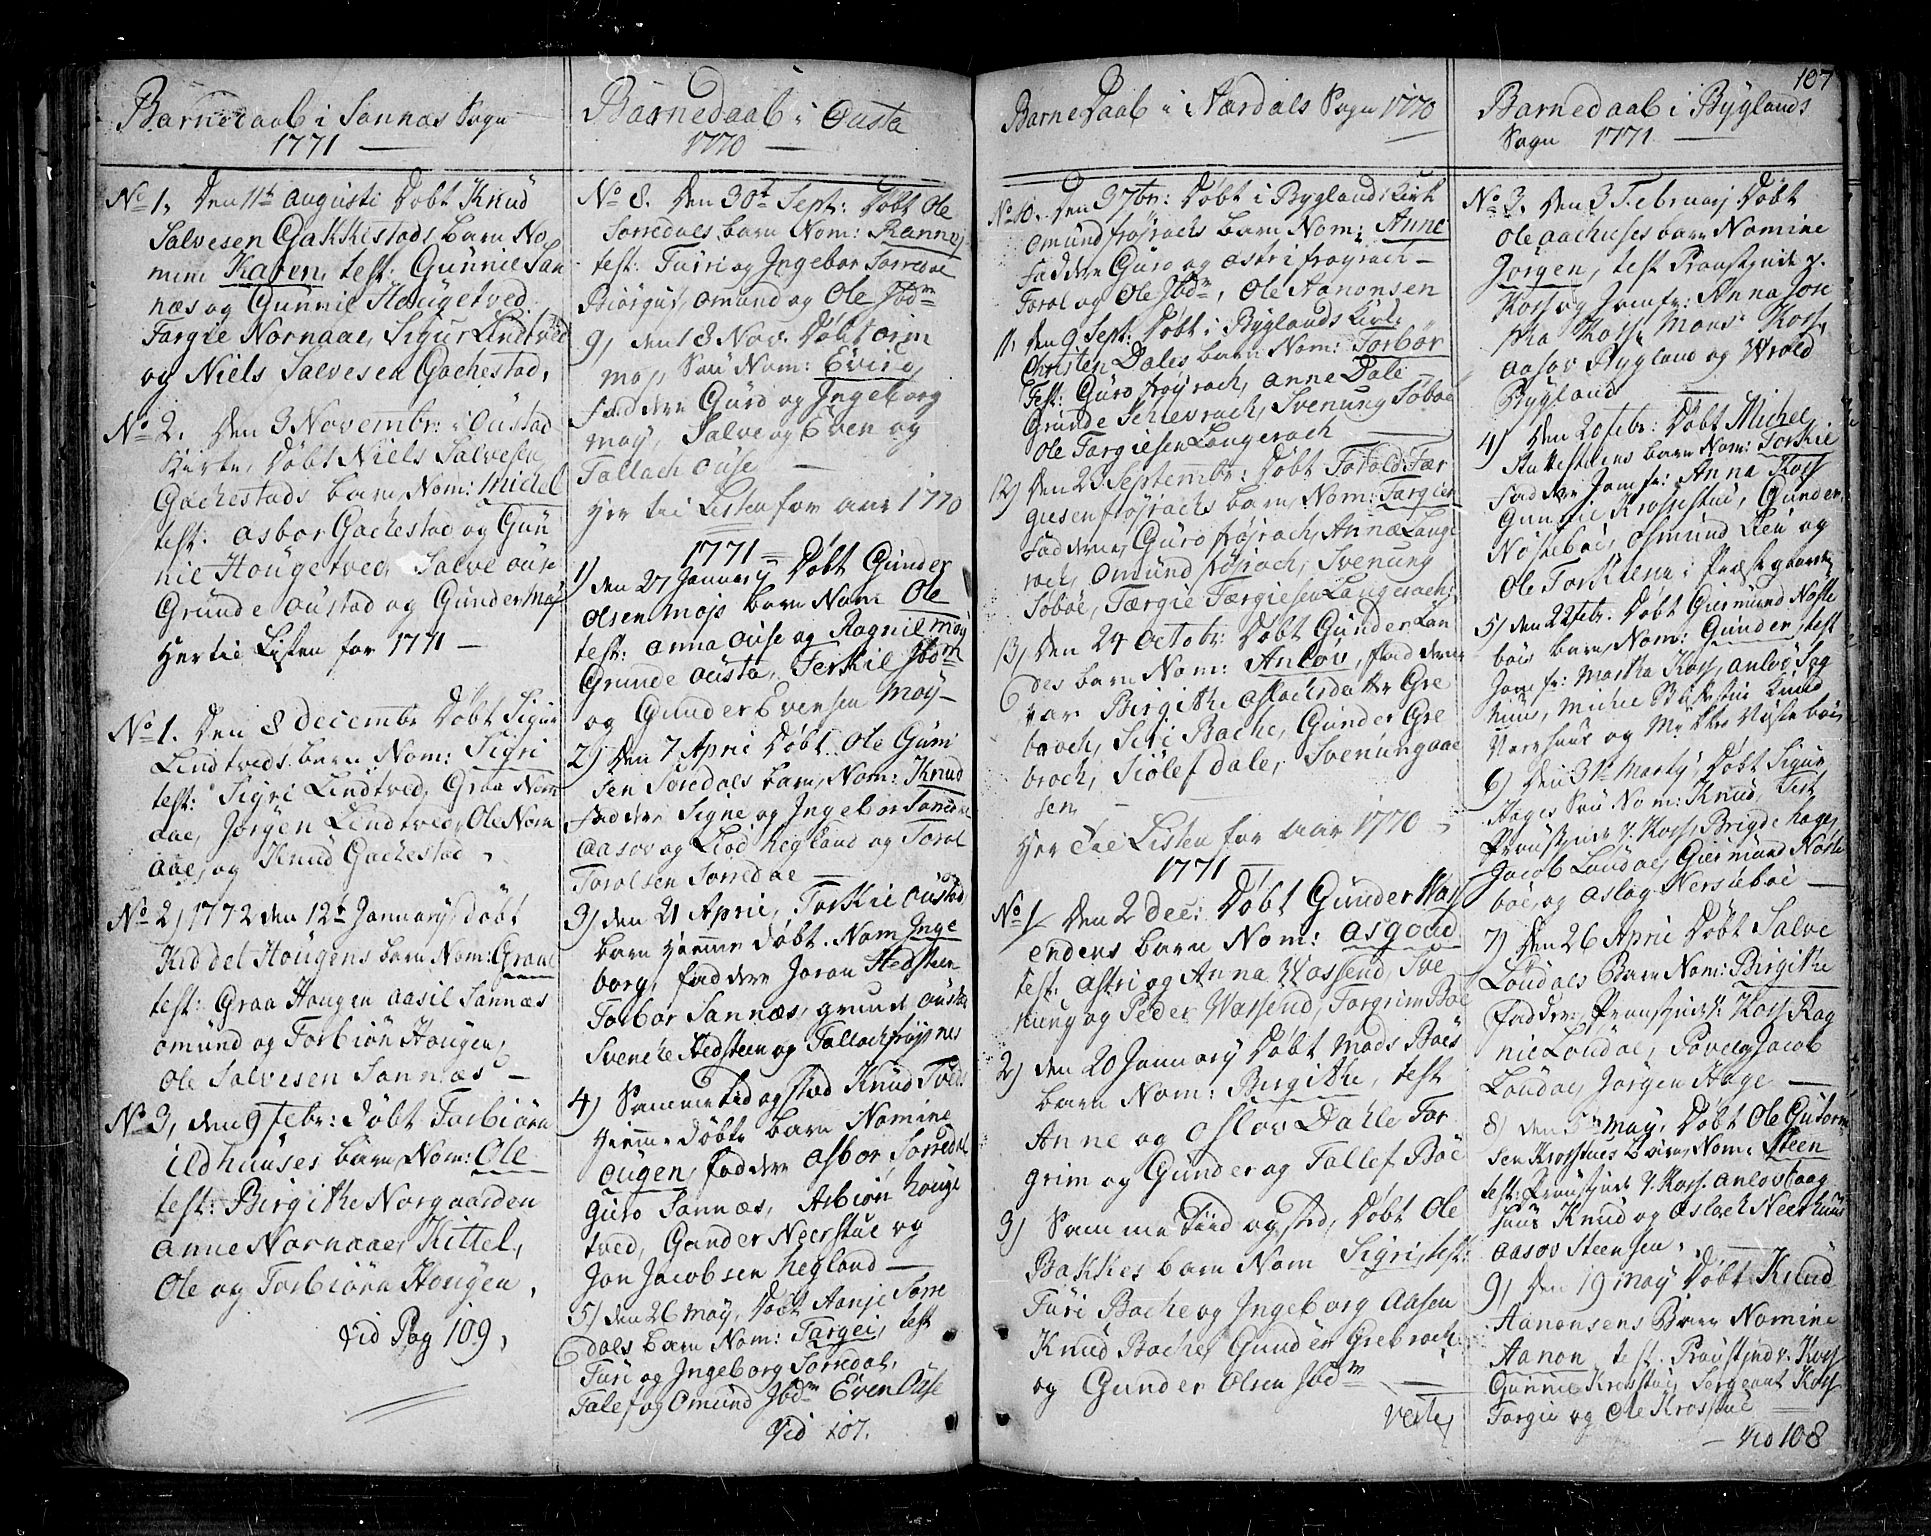 107
Barnedaab i Sannæs Sogn
1771
No 1. Den 11te Augusti Døbt Knud
Salvesen Gakkestads barn No
mine Karen, test: Gunnil San
næs og Gunnil Hougetved
Targie Nornaae, Sigur Lindtved
og Niels Salvesen Gachestad,
No 2. Den 3 Novembr: i Oustad
Kirke, Døbt Niels Salvesen
Gachestads barn, Nom: Michel
test: Asbor Gachestad og Gun
nie Hougetved, Salve Ouse
Grunde Oustad og Gunder Moj
Her til Listen for 1771 —
No 1. Den 8 Decembr Døbt Sigur
Lindtveds barn Nom: Sigri
test: Sigri Lindtved, Graa Norn
aae, Jørgen Lindtved, Ole Norn
aae, og Knud Gachestad,
No 2, 1772 den 12t January, døbt
Kiddel Hougens barn Nom: Graae
test: Graa Hougen Aasil Sannæs
Omund og Torbiøn Hougen,
Ole Salvesen Sannæs —
No 3, den 9 febr: Døbt Torbiørn
Ildhuuses barn, Nom: Ole
test: Birgithe Norgaarden
Anne Nornaae, Kittel,
Ole og Torbiørn Hougen,
Vid Pag 109,
Barnedaab i Ousta
1770 —
No 8. Den 30t Sept: Døbt Ole
Sorredals barn Nom: Kanne,
test: Turi og Ingebor Sorredal
Biorgus, Omund og Ole Ibdm
9, den 18 Nov. Døbt Orm
Moj, Nom: Evin,
faddere Guro og Ingeborg
Moy, Salve og Even og
Tallach Ouse —
Her til Listen for aar 1770
1771 —
1) den 27 January Døbt Gunder
Olsen Mojs barn Nom Ole
test: Anna Ouse og Ragnil Moy
Grunde Ousta, Terkil Ibdm
og Gunder Evensen Moy —
2) Den 7 April Døbt Ole Guni
sen Soredals barn, Nom: Knud
faddere Signe og Ingebor Sorredal
Aasov og Liod Hegland og Torol
Torolsen Sorredae —
3) den 21 April, Torkil Oustad
barn Hjemme døbt. Nom Inge
borg, faddere Joran Stedsteen
Torbor Sannæs, grunde Ousta
Svenke Stedsteen og Tallach frøysnes
4) Samme tid og sted Knud Tveds
Hjemme døbte barn Nomine
Ougen, faddere Asbor Sorredal
Guro Sannæs, Asbiøn houge
tved, Gunder Neerstue og
Jon Jacobsen hegland —
5) den 26 May, Døbt Aanje Sorre
dals barn Nom: Targei, test
Turi og Ingeborg Sorredal,
Talef og Omund Ibdm Even Ouse
Vid 107.
Barnedaab i Aardals Sogn 1770
No 10. Den 3 7br: Døbt i Byglands Kirk
Omund frøsrachs barn Nom: Anne
faddere Guro og Astri frøyrach —
Torol og Ole Ibdm, Ole Aanonsen
11, den 9 Sept: Døbt i Byglands Kirke
Christen Dales barn Nom: Torbor
Test: Guro frøyrach, Anne Dale —
Grunde Schlevrach, Svenung Søbøe
Ole Targiesen Langerach —
12) Den 23 Septembr: Døbt Torold Tær
giesen frøjrachs barn, Nom: Targier
faddere, Guro frøjrach, Annæ Lange
rach, Omund frøjrach, Svenung
Søbøe, Tærgie Tærgiesen Langerach,
13) Den 24 Octobr: Døbt Gunder Lan
des barn Nom: Anlov, faddere
var Birgithe Aslachsdatter Gre
broch, Siri Bache, Gunder Gre
broch, Siølef Dale, Svenung Aae
sen —
Her til Listen for aar 1770 —
1771 —
No 1/ Den 2 Dec: Døbt Gunder Was
endens barn Nom: Asgoud
test: Astri og Anna Wassend, Sve
nung og Peder Wassend, Torgrim Bøe
2) den 20 January Døbt Mads Bøes
barn Nom: Birgithe, test
Anne og Oslov Dahle Tor
grim og Gunder og Tallef Bøe
3) Samme Tiid og sted, Døbt Ole
Bakkes barn Nom Sigri, test:
Turi Bache og Ingeborg Aasen
Knud Bache, Gunder Grebroch
og Gunder Olsen Ibdm —
Verte,
Barnedaab i Byglands
Sogn 1771 —
No 3. den 3 February Døbt
Ole Aachuses barn Nomine
Jørgen, test Proustinde v.
Koss og Jomfr: Anna Jose
pha Koss. Mons: Koss,
Aasov Bygland og Wrold
Bygland —
4) Den 20 febr: Døbt Michel
Stukesteens barn Nom: Torkil
faddere Jomfr: Anna Koss
Gunnil Krossestue, Gunder
Nøsebøe, Osmund Lien og
Ole Torkilens i Præstegaarden
5) den 22 febr. Døbt Giermund Nøste
bøes barn, Nom: Gunder, test
Jomfr: Martha Koss, Anlov Lag
huus, Michel Knud
Neerhuus og Mikkel Nøstebøe,
6) Den 31t Marty, Døbt Sigur
Hages Nom: Knud, Test
Proustinde v. Koss, Brigde hage,
Jacob Loudal, Giermund Nøste
bøe, og Aslag Nersiebøe —
7) Den 26 April Døbt Salve
Loudals Barn Nom: Birgithe
fadder: Proustinde v: Koss Rag
nil Loudal, Povel og Jacob
Loudal, Jørgen Hage —
8) den 5t May, Døbt Ole Gutorm
sen Krosstues Barn, Nom: Steen
test: Proustinde v. Koss. Anlov Laag
huus Knud og Aslach Neerhuus
Aasov Steensen,
9) Den 19 May Døbt Knud
Aanonsens Barn Nomine
Aanon test. Proustinde v. Koss
Gunnil Krosstue, Sergeant Koss
Targie og Ole Krosstue —
— Vid 108